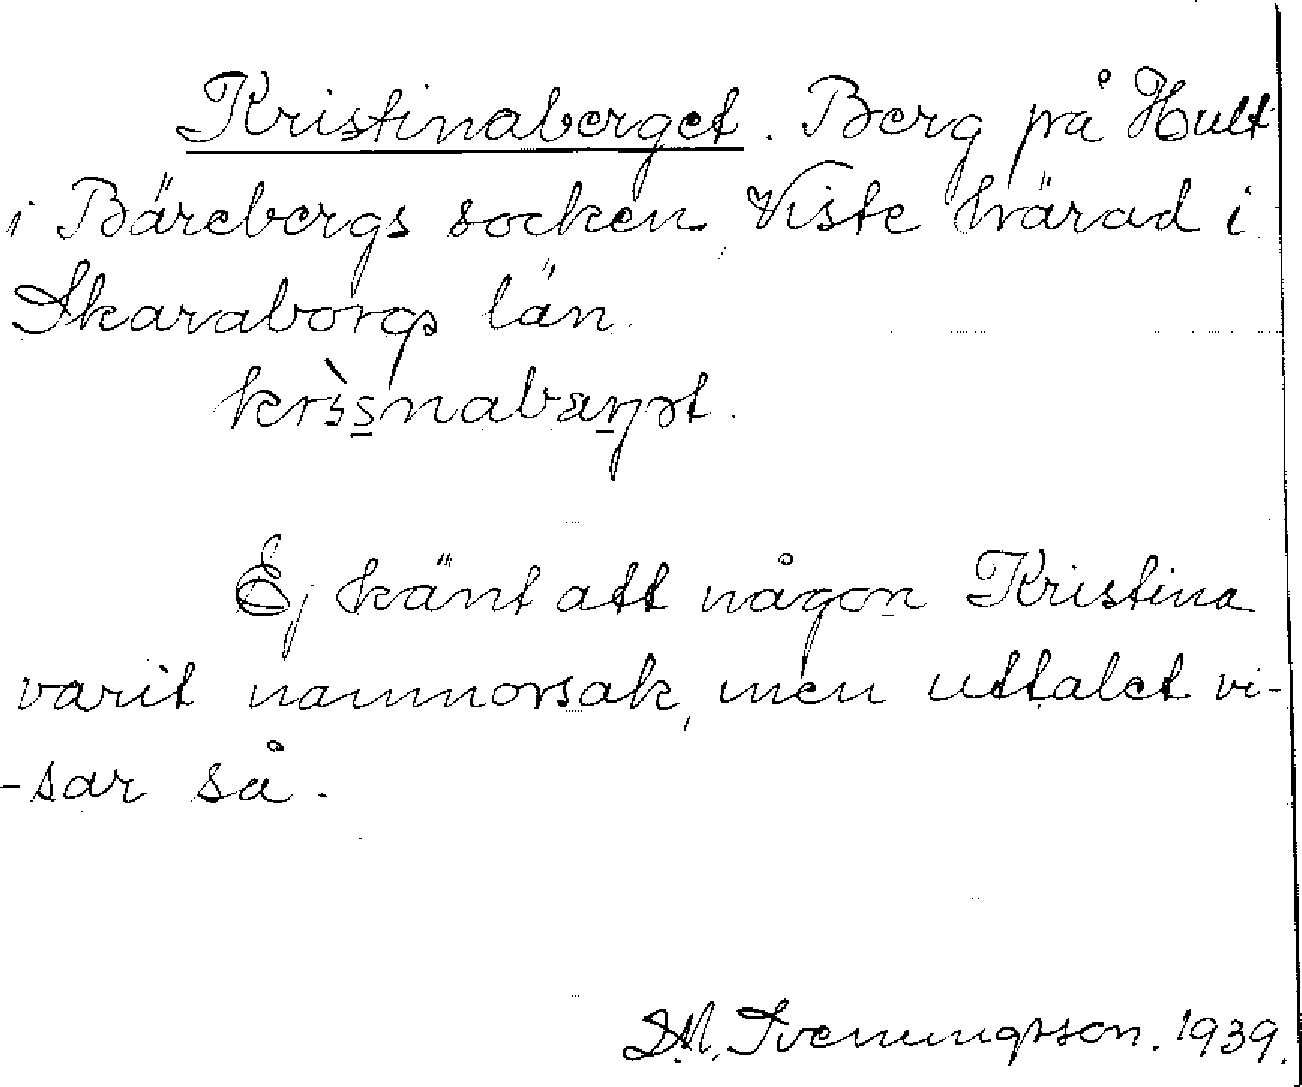 Kristinaberget. Berg på Hult
i Bärebergs socken, Viste härad i
Skaraborgs län.
Ej känt att någon Kristina
varit namnorsak, men uttalet vi-
-sar så.
Svenungsson. 1939.